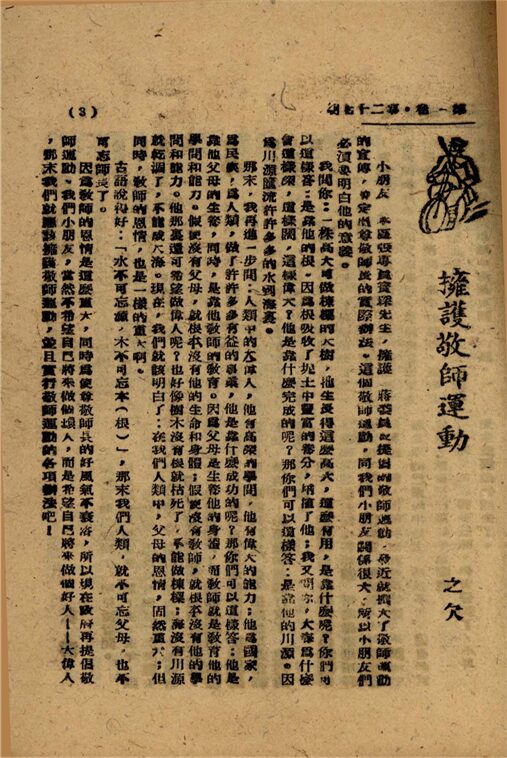 第一卷・第二十七期
(3)
擁護敬師運動
之欠
小朋友 本區張專員寶琛先生,擁護 蔣委員長提倡的敬師運動,最近就擴大了敬師運動
的宣傳,幷定出尊敬師長的實際辦法。這個敬師運動,同我們小朋友關係很大,所以小朋友們
必須要明白他的意義。
我問你:一棵高大可做棟樑的大樹,牠生長得這麼高大,這麼有用,是靠什麼呢?你們可
以這樣答:是靠他的根。因爲根吸收了泥土中豐富的養分,培植了他;我又問你,大海爲什麼
會這樣深,這樣闊,這樣偉大?他是靠什麼完成的呢?那你們可以這樣答:是靠他的川源。因
爲川源匯流許許多多的水到海裏。
那末,我再進一步問:人類中的大偉人,他有高深的學問,他有偉大的能力;他爲國家,
爲民族,爲人類,做了許許多多有益的事業,他是靠什麼成功的呢?那你們可以這樣答:他是
靠他父母的生養,同時,是靠他教師的教育。因爲父母是生養他的身體,而教師就是教育他的
學問和能力。假使沒有父母,就根本沒有他的生命和身體;假使沒有教師,就根本沒有他的學
問和能力。他那裏還可希望做偉人呢?也好像樹木沒有根就枯死了,不能做棟樑;海沒有川源
就乾涸了,不能成大海。現在,我們就該明白了:在我們人類中,父母的恩情,固然重大;但
同時,教師的恩情,也是一樣的重大啊。
古語說得好:「水不可忘源,木不可忘本(根)」,那末我們人類,就不可忘父母,也不
可忘師長了。
因爲教師的恩情是這麼重大,同時爲使尊敬師長的好風氣不衰落,所以現在政府再提倡敬
師運動。我們小朋友,當然不希望自己將來做個壞人,而是希望自己將來做個好人——大偉人
,那末我們就應該擁護敬師運動,並且實行敬師運動的各項辦法吧!